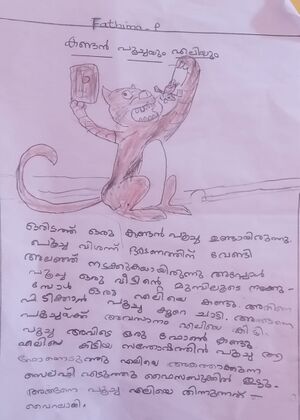 Fathima - P
കണ്ടൻ പൂച്ചയും എലിയും
ഒരിടത്ത് ഒരു കണ്ടൻ പൂച്ച ഉണ്ടായിരുന്നു.
പൂച്ച വിശന്ന് ഭക്ഷണത്തിന് വേണ്ടി
അലഞ്ഞ് നടക്കുകയായിരുന്നു അപ്പോൾ
പൂച്ച ഒരു വീട്ടിന്റെ മുമ്പിലൂടെ നടക്കു-
മ്പോൾ ഒരു എലിയെ കണ്ടു. അതിനെ
പിടിക്കാൻ പൂച്ച കുറെ ചാടി. അങ്ങനെ
പൂച്ചയ്ക്ക് അവസാനം എലിയെ കിട്ടി.
പൂച്ച അവിടെ ഒരു ഫോൺ കണ്ടു
എലിയെ കിട്ടിയ സന്തോഷത്തിൽ പൂച്ച ആ
ഫോണെടുത്തു എലിയെ
സെൽഫി എടുത്തു ഫൈസ്ബുക്കിൽ ഇട്ടു.
അങ്ങനെ പൂച്ച എലിയെ തിന്നുന്നത്
വൈറലായി.